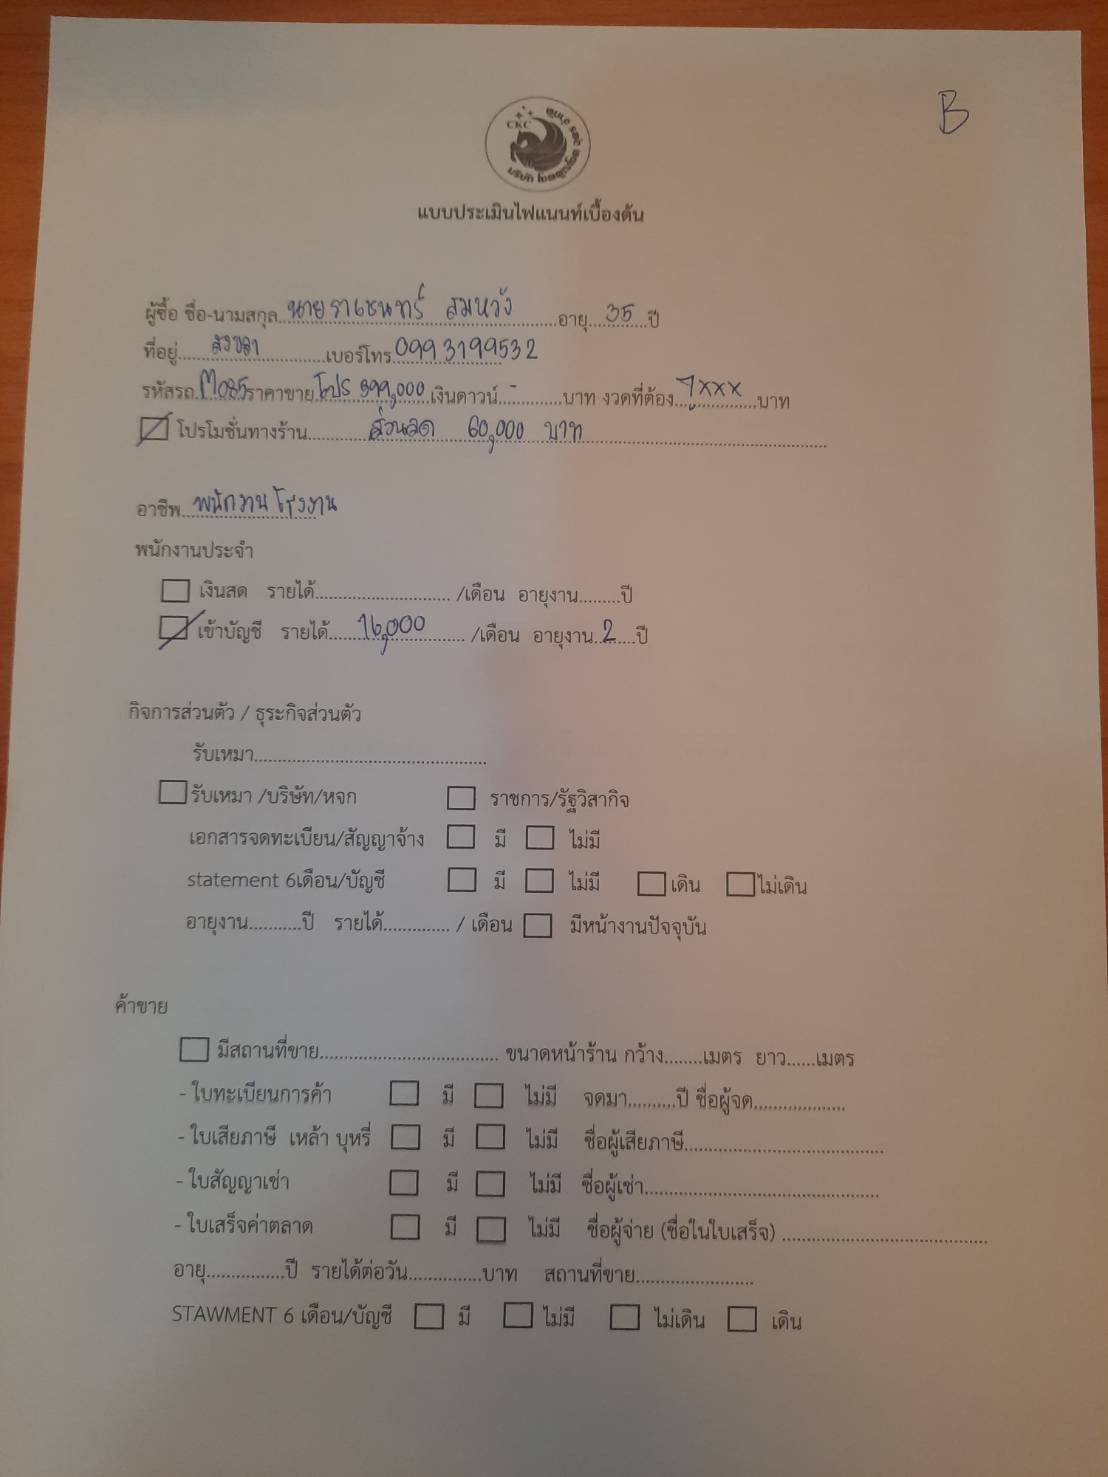 B
CKC
แบบประเมินไฟแนนท์เบื้องต้น
ผู้ซื้อ ชื่อ-นามสกุล นายราเชนทร์ สมหวัง อายุ 35 ปี
ที่อยู่ สงขลา เบอร์โทร 0993199532
รหัสรถ M085 ราคาขาย โปร 399,000 เงินดาวน์ - บาท งวดที่ต้อง 7xxx บาท
โปรโมชั่นทางร้าน ส่วนลด 60,000 บาท
อาชีพ พนักงานโรงงาน
พนักงานประจำ
เงินสด รายได้ /เดือน อายุงาน ปี
เข้าบัญชี รายได้ 16,000 /เดือน อายุงาน 2 ปี
กิจการส่วนตัว / ธุระกิจส่วนตัว
รับเหมา
รับเหมา /บริษัท/หจก ราชการ/รัฐวิสากิจ
เอกสารจดทะเบียน/สัญญาจ้าง มี ไม่มี
statement 6เดือน/บัญชี มี ไม่มี เดิน ไม่เดิน
อายุงาน ปี รายได้ / เดือน มีหน้างานปัจจุบัน
ค้าขาย
มีสถานที่ขาย ขนาดหน้าร้าน กว้าง เมตร ยาว เมตร
- ใบทะเบียนการค้า มี ไม่มี จดมา ปี ชื่อผู้จด
- ใบเสียภาษี เหล้า บุหรี่ มี ไม่มี ชื่อผู้เสียภาษี
- ใบสัญญาเช่า มี ไม่มี ชื่อผู้เช่า
- ใบเสร็จค่าตลาด มี ไม่มี ชื่อผู้จ่าย (ชื่อในใบเสร็จ)
อายุ ปี รายได้ต่อวัน บาท สถานที่ขาย
STAWMENT 6 เดือน/บัญชี มี ไม่มี ไม่เดิน เดิน